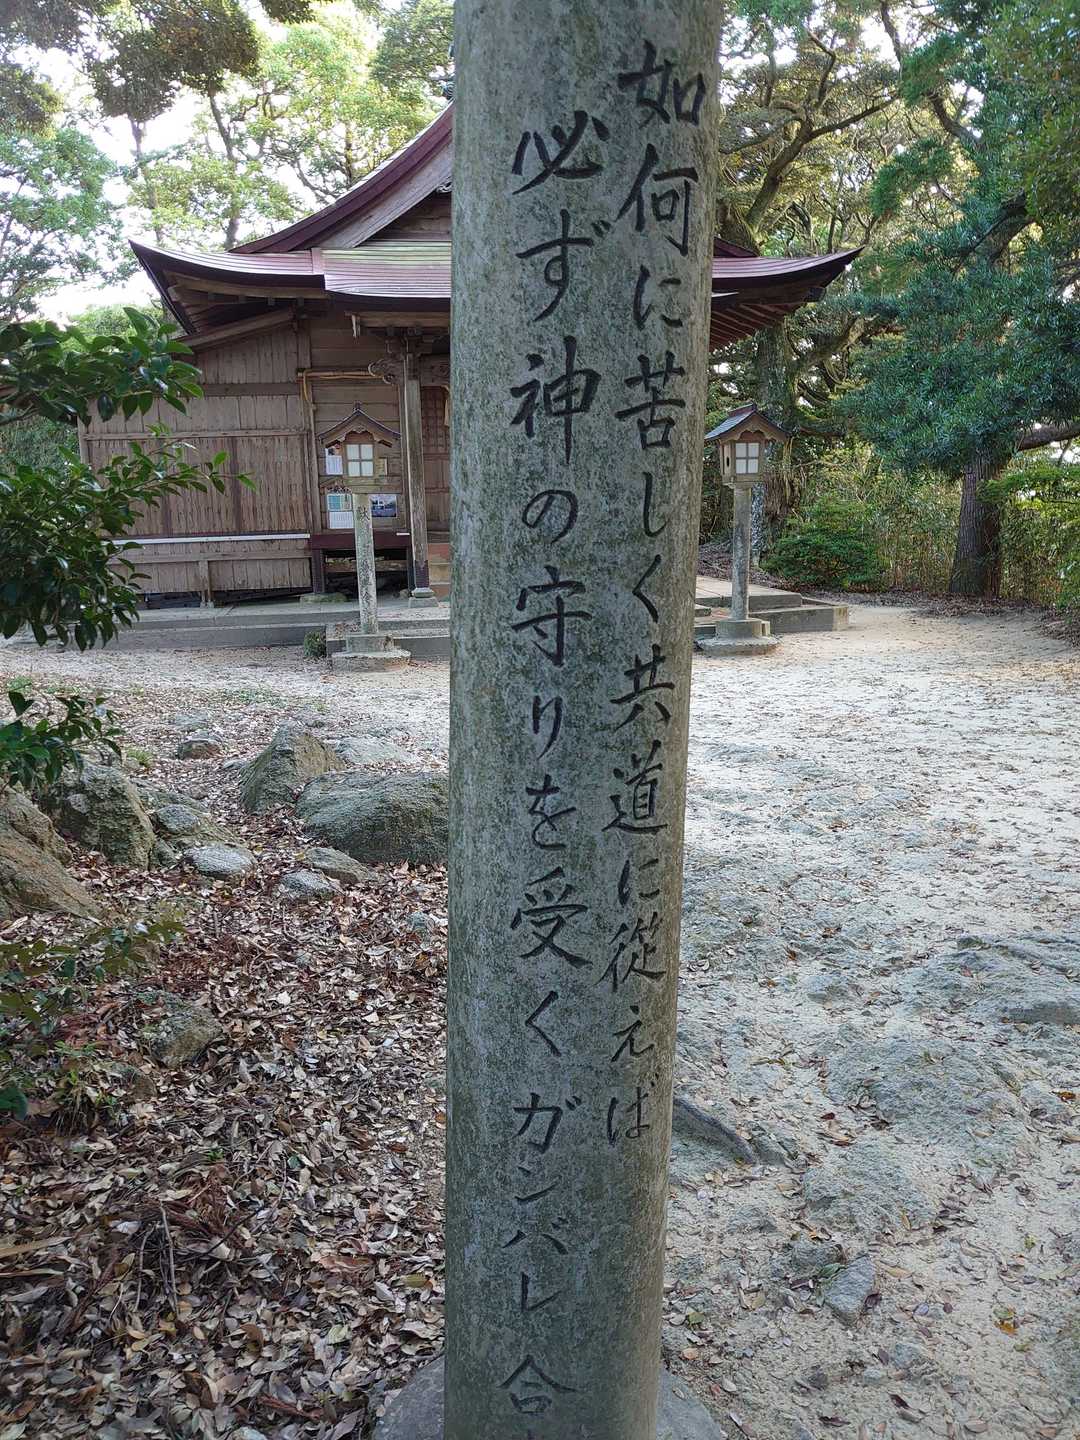 如何に苦しく共道に従えば
必ず神の守りを受くガンバレ合
献